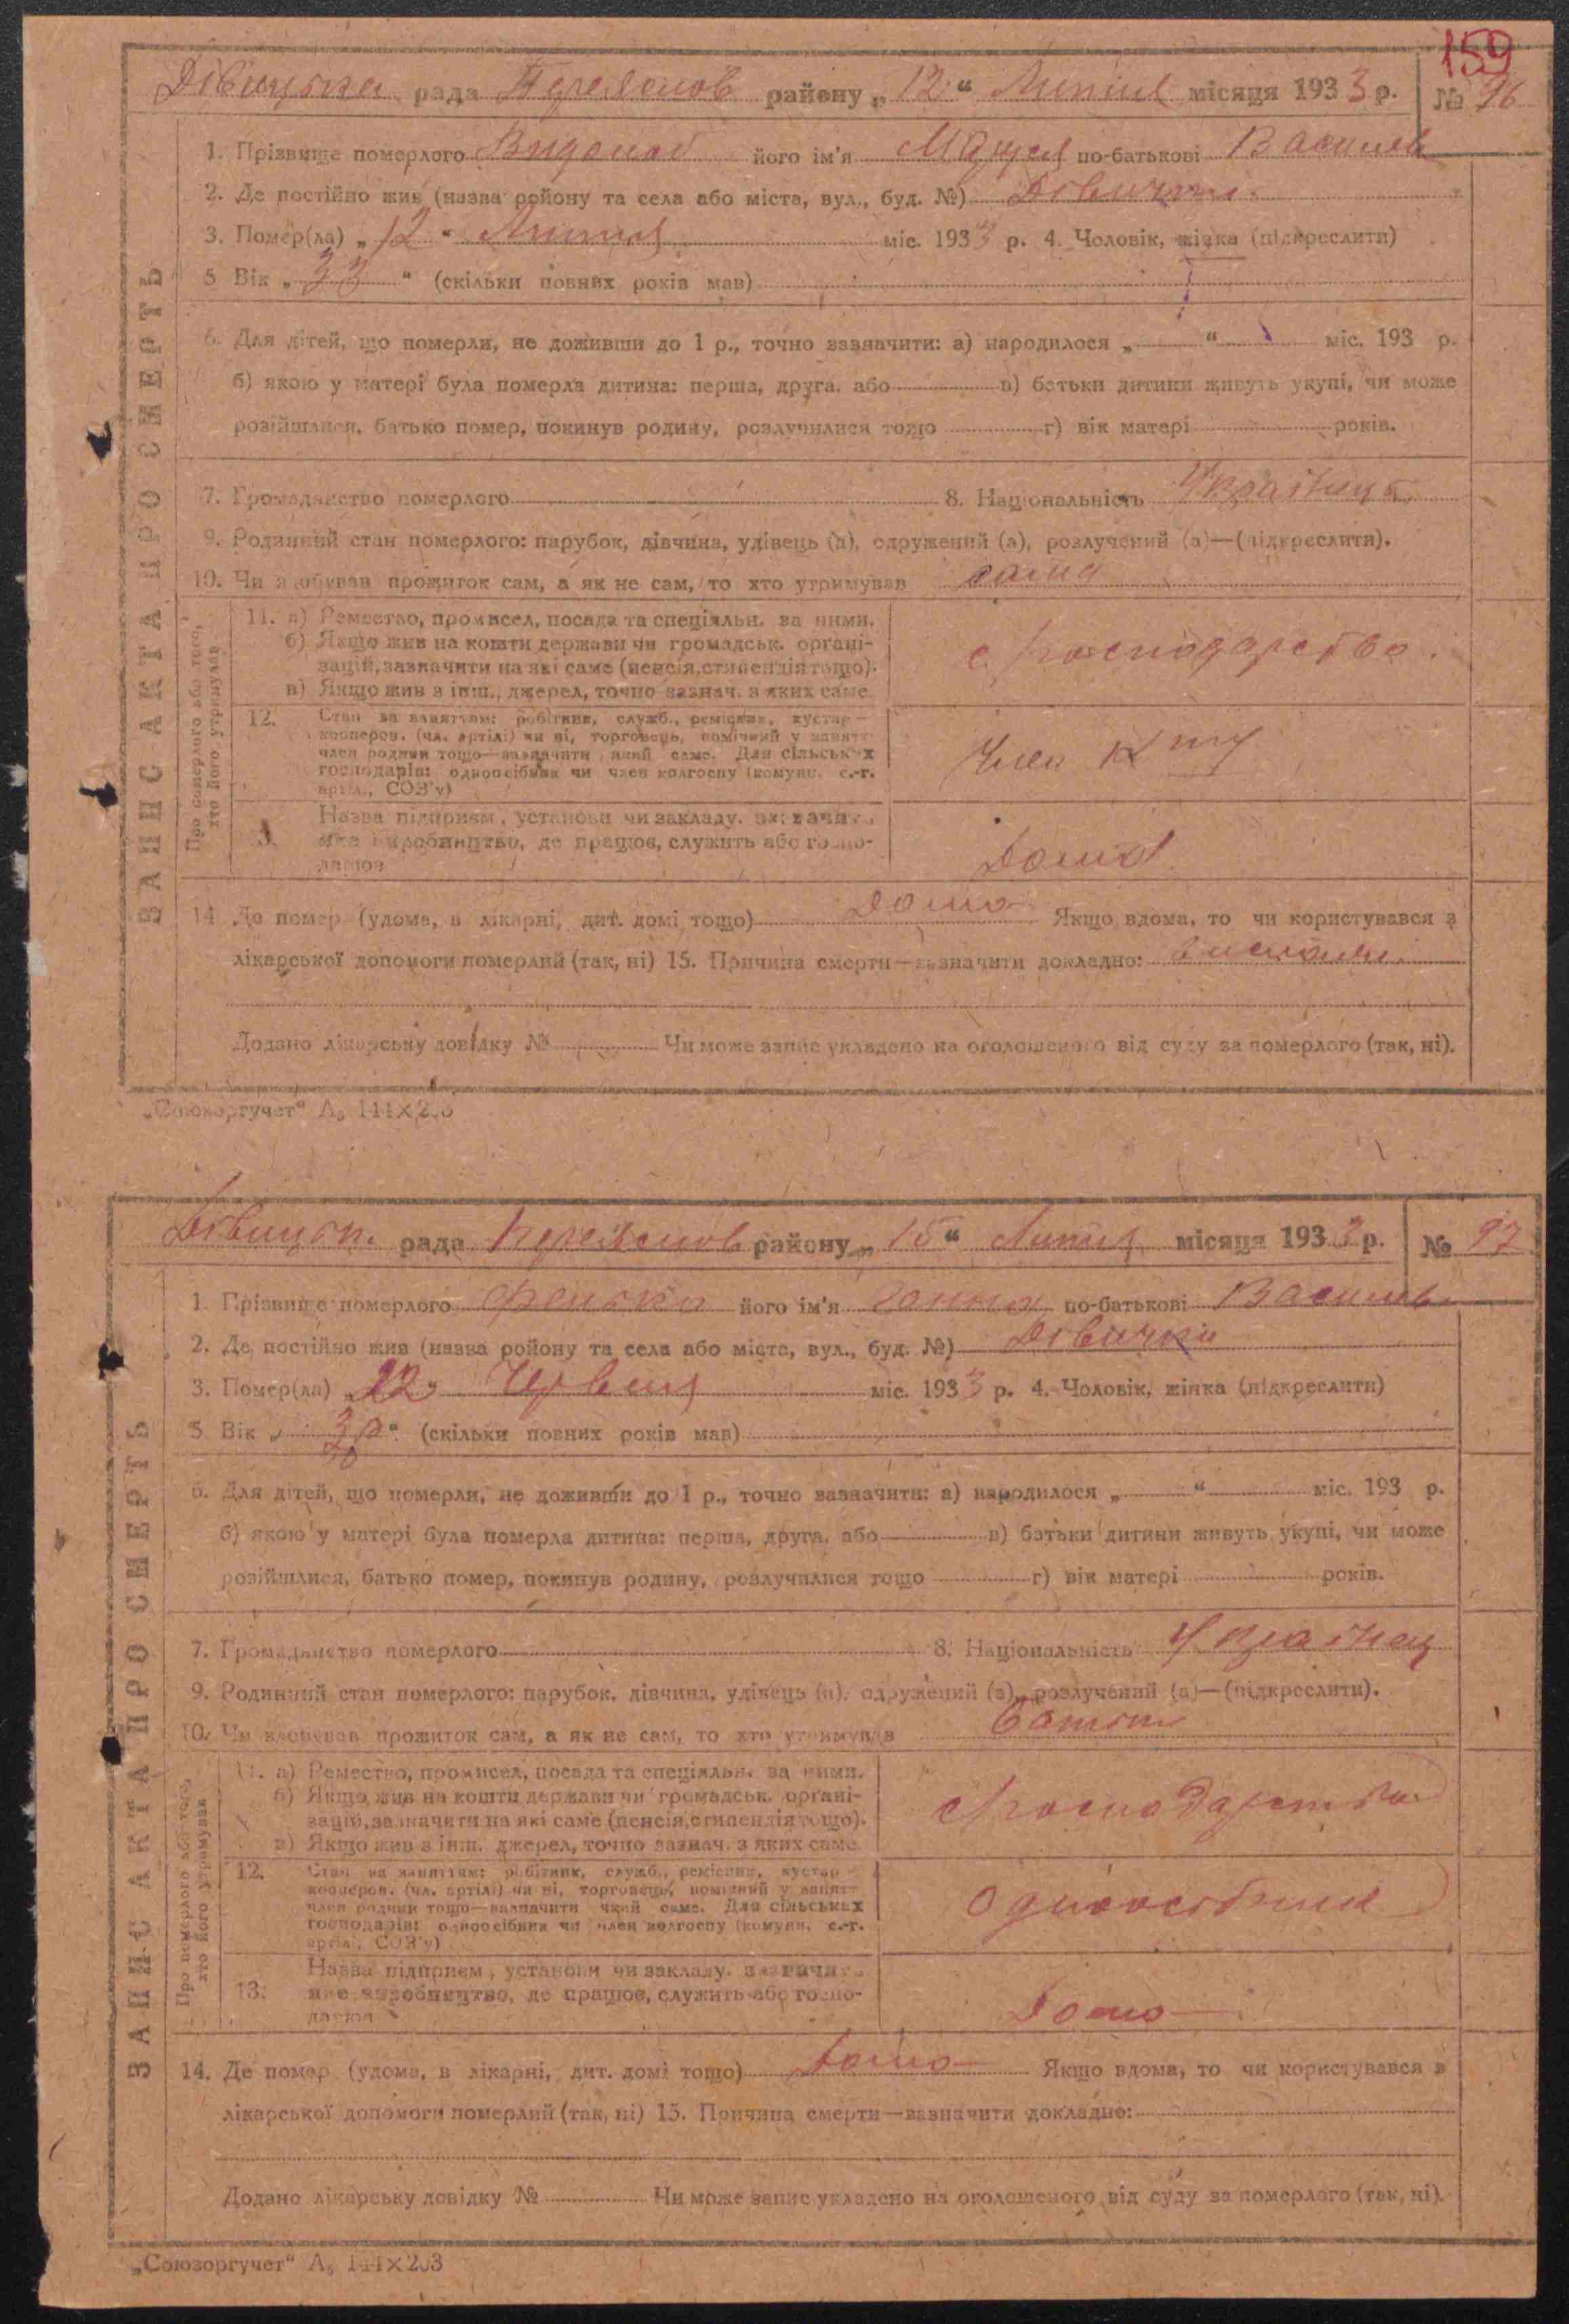 159
Дівицька рада Переяслов району „ 12 “ Липня місяця 1933 р. № 96
1. Прізвище померлого його ім'я по-батькові Василів
2. Де постійно жив (назва ройону та села або міста, вул., буд. №) Дівички
3. Помер(ла) „ 12 “ Липня міс. 1933 р. 4. Чоловік, жінка (підкреслити)
5 Вік „ 33 “ (скільки повних років мав)
6. Для дітей, що померли, не доживши до 1 р., точно зазначити: а) народилося „ “ міс. 193 р.
б) якою у матері була померла дитина: перша, друга, або в) батьки дитини живуть укупі, чи може
розійшлися, батько помер, покинув родину, розлучилися тощо г) вік матері років.
7. Громаданство померлого 8. Національність Українця
9. Родинний стан померлого: парубок, дівчина, удівець (а), одружений (а), розлучений (а)—(підкреслити).
10. Чи здобував прожиток сам, а як не сам, то хто утримував сама
ЗАПИС АКТА ПРО СМЕРТЬ
Про померлого або того, хто його утримував
11. а) Ремество, промисел, посада та спеціяльн. за ними.
б) Якщо жив на кошти держави чи громадськ. органі-
зацій, зазначити на які саме (пенсія, стипендія тощо).
в) Якщо жив з інш., джерел, точно зазнач. з яких саме.
с господарство.
12. Стан за заняттям: робітник, служб., ремісник, кустар—
кооперов. (чл. артілі) чи ні, торговець, помічний у занятт
член родини тощо—зазначити який саме. Для сільських
господарів: одноосібник чи член колгоспу (комуни, с.-г.
артіл., СОЗ'у)
Член
3. Назва підприєм, установи чи закладу, зазначити
яке виробництво, де працює, служить або госпо-
дарює
Дома
14 Де помер (удома, в лікарні, дит. домі тощо) Дома Якщо вдома, то чи користувався з
лікарської допомоги померлий (так, ні) 15. Причина смерти—зазначити докладно:
Додано лікарську довідку № Чи може запис укладено на оголошеного від суду за померлого (так, ні).
„Союзоргучет“ А₅ 144×203
Дівицьк. рада Переяслов району „ 15 “ Липня місяця 1933 р. № 97
1. Прізвище померлого його ім'я Ганна по-батькові Василів
2. Де постійно жив (назва ройону та села або міста, вул., буд. №) Дівички
3. Помер(ла) „ 22 “ Червня міс. 1933 р. 4. Чоловік, жінка (підкреслити)
5 Вік „ “ (скільки повних років мав)
6. Для дітей, що померли, не доживши до 1 р., точно зазначити: а) народилося „ “ міс. 193 р.
б) якою у матері була померла дитина: перша, друга, або в) батьки дитини живуть укупі, чи може
розійшлися, батько помер, покинув родину, розлучилися тощо г) вік матері років.
7. Громаданство померлого 8. Національність Українец
9. Родинний стан померлого: парубок, дівчина, удівець (а), одружений (а), розлучений (а)—(підкреслити).
10. Чи здобував прожиток сам, а як не сам, то хто утримував
ЗАПИС АКТА ПРО СМЕРТЬ
Про померлого або того, хто його утримував
11. а) Ремество, промисел, посада та спеціяльн. за ними.
б) Якщо жив на кошти держави чи громадськ. органі-
зацій, зазначити на які саме (пенсія, стипендія тощо).
в) Якщо жив з інш. джерел, точно зазнач. з яких саме.
с господарства
12. Стан за заняттям: робітник, служб., ремісник, кустар—
кооперов. (чл. артілі) чи ні, торговець, помічний у занятт
член родини тощо—зазначити який саме. Для сільських
господарів: одноосібник чи член колгоспу (комуни, с.-г.
артіл., СОЗ'у)
Одноосібниця
13. Назва підприєм, установи чи закладу, зазначити
яке виробництво, де працює, служить або госпо-
дарює
Дома
14. Де помер (удома, в лікарні, дит. домі тощо) Дома Якщо вдома, то чи користувався з
лікарської допомоги померлий (так, ні) 15. Причина смерти—зазначити докладно:
Додано лікарську довідку № Чи може запис укладено на оголошеного від суду за померлого (так, ні).
„Союзоргучет“ А₅ 144×203